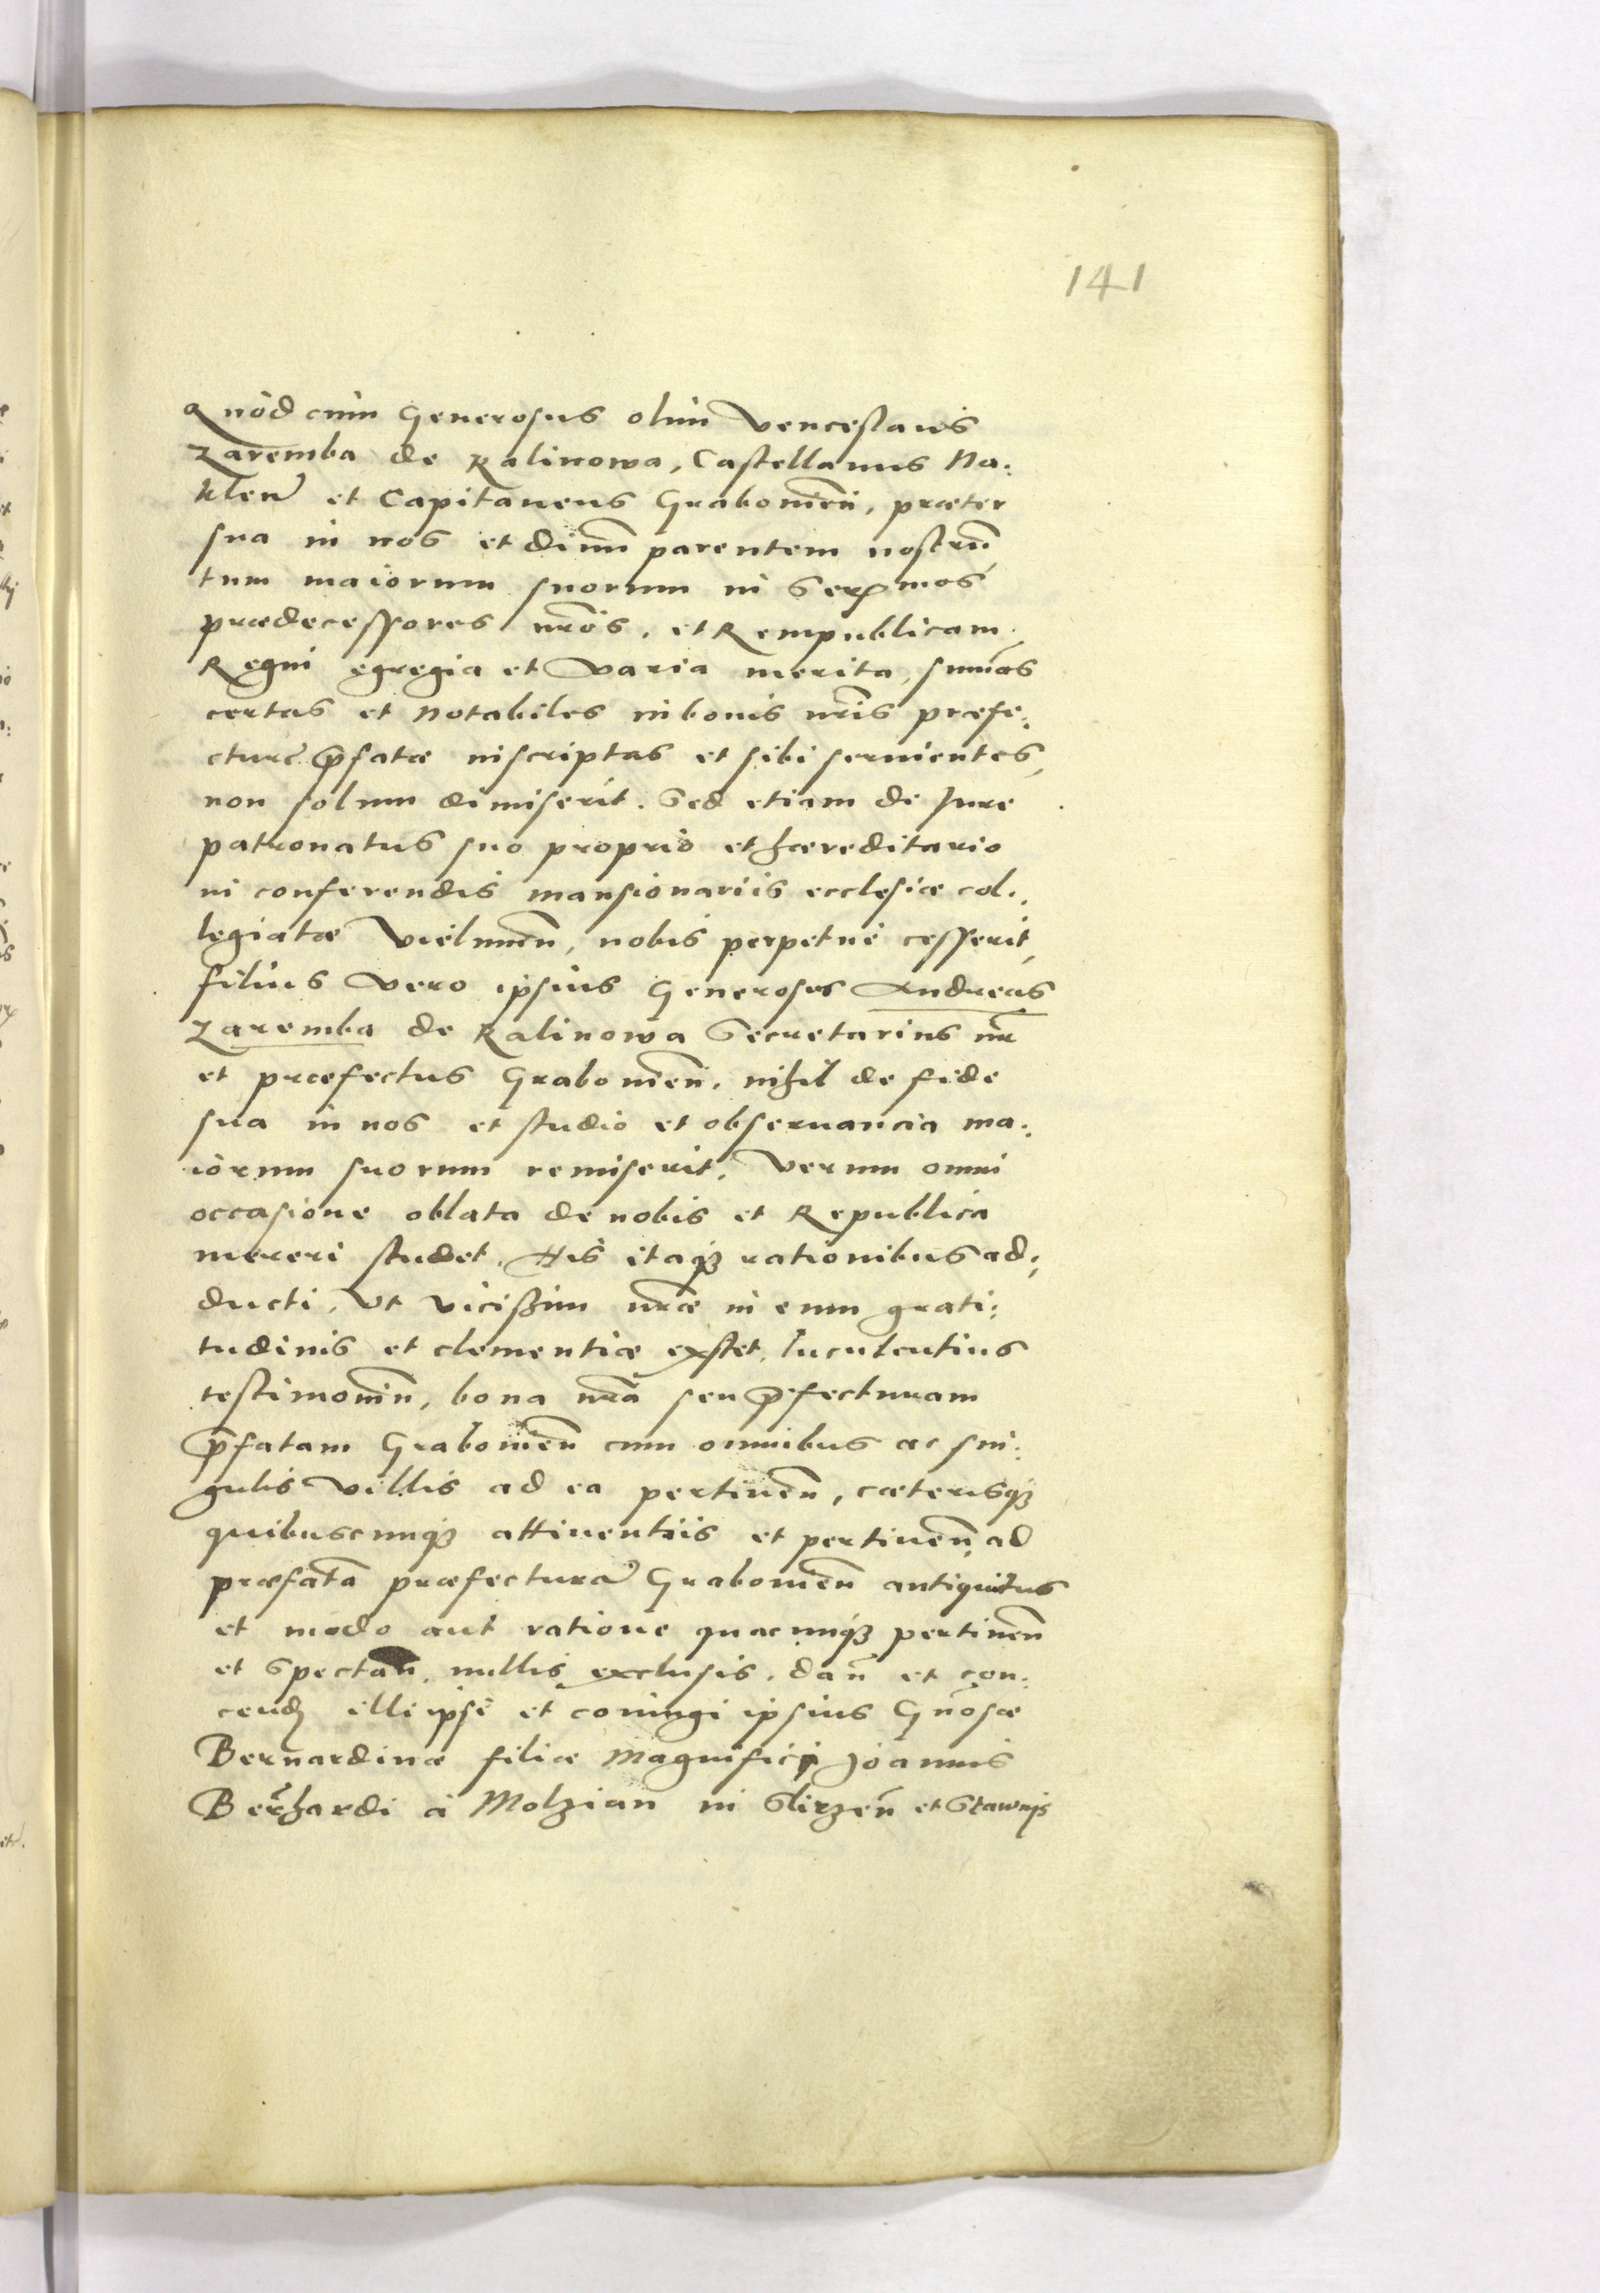 141
Quòd cum Generosus olim Venceslaus
Zaremba de Kalinowa, Castellanus Na:
klen̄ et Capitaneus Grabovien̄, præter
sua in nos et diuū parentem nostrū,
tum maiorum suorum in Serꝫmos
prædecessores nr̄os, et Rempublicam
Regni egregia et varia merita, sum̄as
certas et notabiles in bonis nr̄is præfe:
cturæ p̄fatæ inscriptas et sibi seruientes,
non solum dimiserit. Sed etiam de Jure
patronatus suo proprio et hæreditario
in conferendis mansionariis ecclesiæ col:
legiatæ Vielunen̄, nobis perpetuè cesserit,
filius vero ipsius Generosus Andreas
Zaremba de Kalinowa Secretarius nr̄
et præfectus Grabovien̄, nihil de fide
sua in nos et studio et obseruancia ma:
iorum suorum remiserit, Verum omni
occasione oblata de nobis et Republica
mereri studet. His itaqꝫ rationibus ad:
ducti, Vt vicißim nr̄æ in eum grati:
tudinis et clementiæ exstet luculentius
testimoniū, bona nr̄a seu p̄fecturam
p̄fatam Grabovien̄ cum omnibus ac sin:
gulis villis ad ea pertinen̄, cæterisqꝫ
quibuscunqꝫ attinentiis et pertinen̄, ad
præfatā præfecturā Grabovien̄ antiquitus
et modo aut ratione quacunqꝫ pertinen̄
et spectan̄, nullis exclusis, dan̄ et con:
cend illi ipsi et coniugi ipsius Gn̄osæ
Bernardinæ filiæ Magnifici Joannis
Bernhardi à Molzian in et